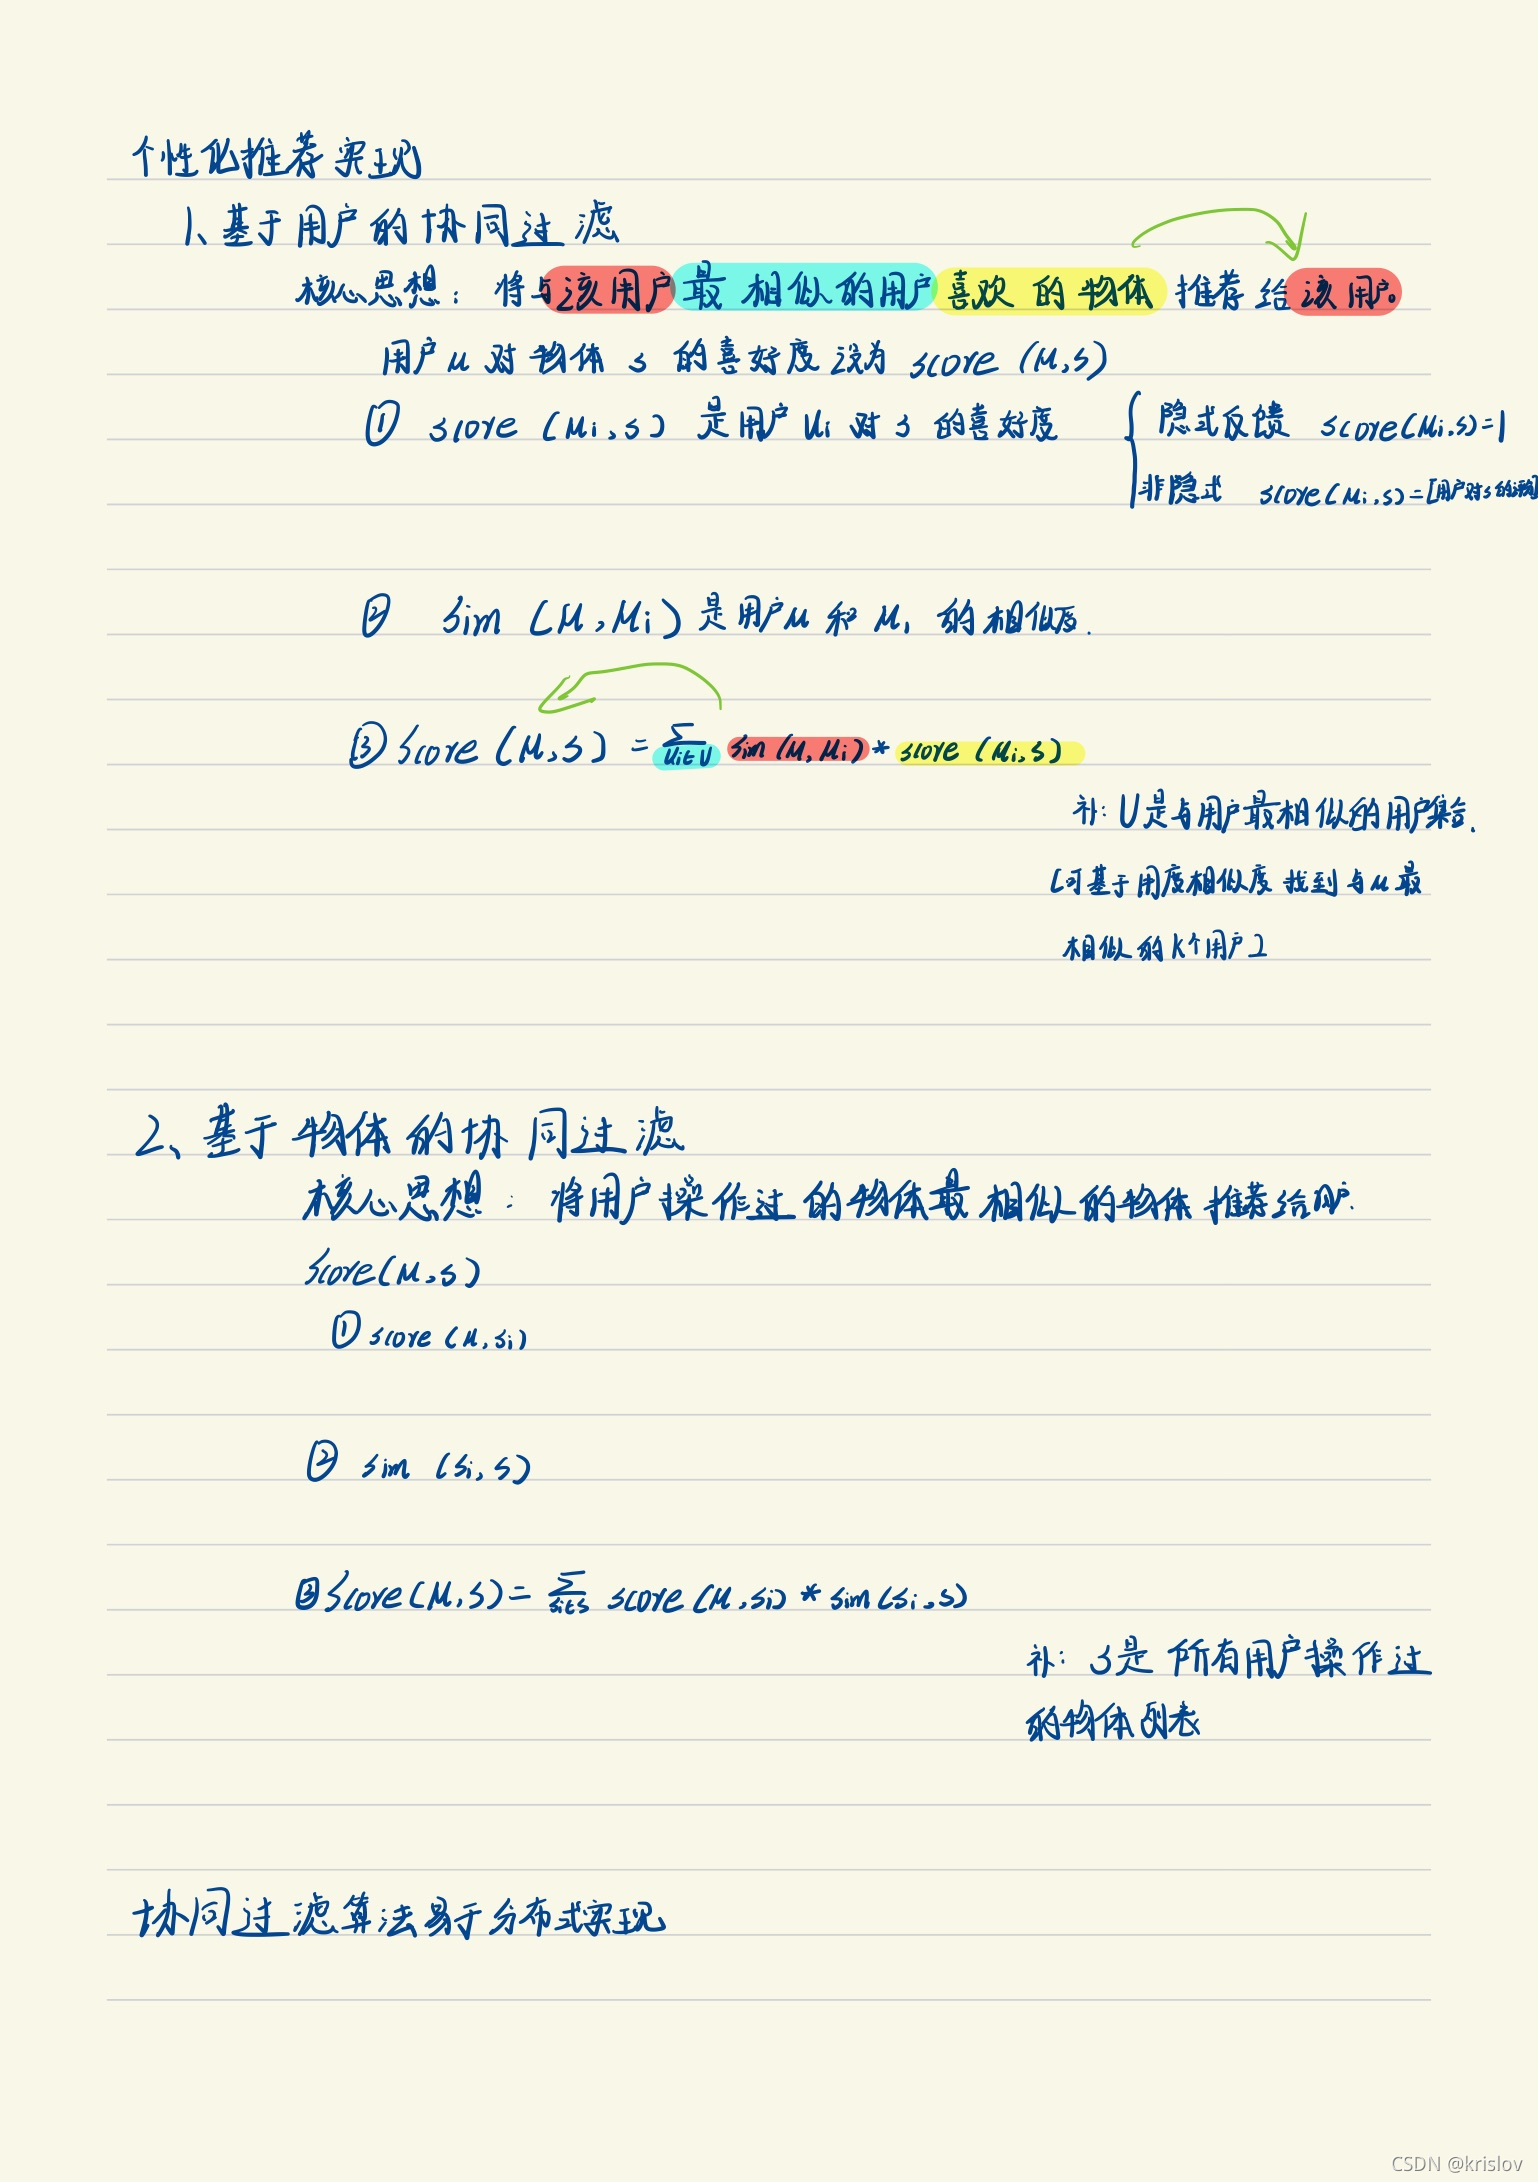 个性化推荐实现
1、基于用户的协同过滤
核心思想：将与该用户最相似的用户喜欢的物体推荐给该用户。
用户u对物体s的喜好度设为score(u,s)
① score(ui,s)是用户ui对s的喜好度
隐式反馈 score(ui,s)=1
非隐式 score(ui,s)=[用户对s的
② sim(u,ui)是用户u和ui的相似度.
③ score(u,s)=∑ui∈U sim(u,ui)*score(ui,s)
补：U是与用户最相似的用户集合.
[可基于用度相似度找到与u最
相似的k个用户]
2、基于物体的协同过滤
核心思想：将用户操作过的物体最相似的物体推荐给用户.
score(u,s)
① score(u,si)
② sim(si,s)
③ score(u,s)=∑si∈S score(u,si)*sim(si,s)
补：S是所有用户操作过
的物体列表
协同过滤算法易于分布式实现
CSDN @krislov